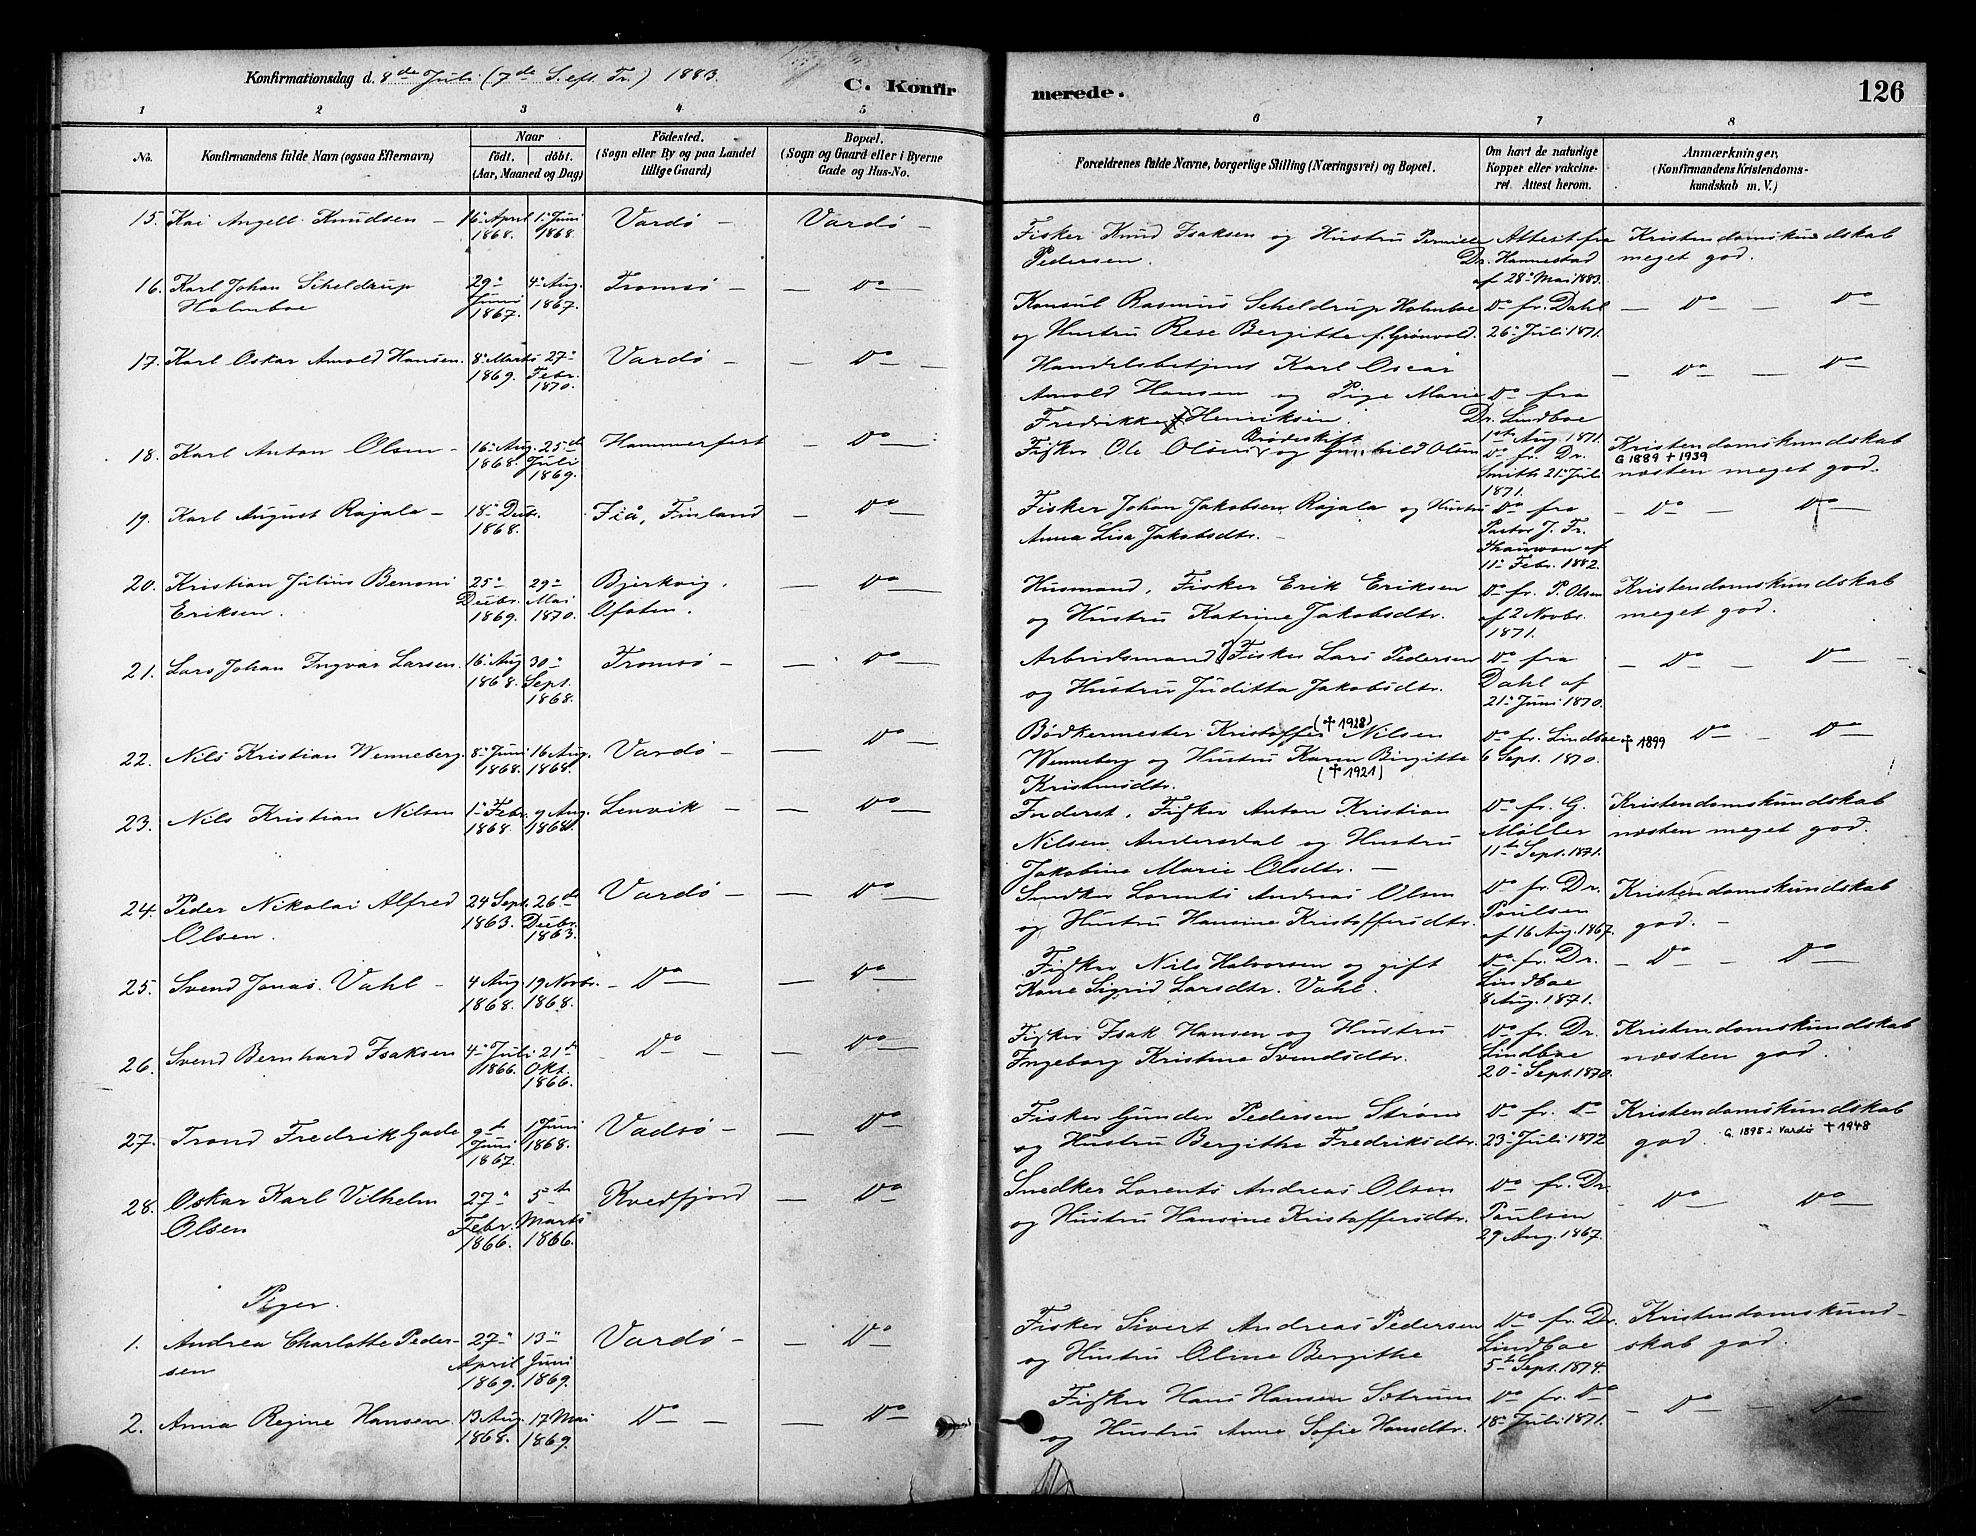 Konfirmationsdag d. 8de Juli (7de S. eft. Tr.) 1883.
C. Konfir
merede.
126
1 2 3 4 5 6 7 8
No.
Konfirmandens fulde Navn (ogsaa Efternavn)
Naar
födt. döbt.
(Aar, Maaned og Dag)
Födested.
(Sogn eller By og paa Landet
tillige Gaard)
Bopæl.
(Sogn og Gaard eller i Byerne
Gade og Hus-No.
Forældrenes fulde Navne, borgerlige Stilling (Næringsvei) og Bopæl.
Om havt de naturlige
Kopper eller vakcine-
ret. Attest herom.
Anmærkninger,
(Konfirmandens Kristendoms-
kundskab m. V.)
15. Kai Angell Knudsen – 16 April 1ste Juni Vardø – Vardø –
1868. 1868.
Fisker Knud Isaksen og Hustru Pernille Attest fra Kristendomskundskab
Pedersen. Dr. Hannestad meget god.
af 28 Mai 1883.
16. Karl Johan Scheldrup 29 4 Aug. Tromsø – – Do
Holmboe Juni 1867. 1867.
Konsul Rasmus Scheldrup Holmboe Do fr. Dahl – Do – Do
og Hustru Rese Bergitte f. Grønvold. 26 Juli 1871.
17. Karl Oskar Arnold Hansen. 8 Marts 27 Vardø – – Do –
1869. Febr. 1870.
Handelsbetjent Karl Oscar
Arnold Hansen og Pige Marie Do fra – Do – Do
Fredrikke Henriksen. Dr. Lindboe
1ste Aug 1871.
18. Karl Anton Olsen – 16 Aug. 25de Hammerfest – Do –
1868. Juli 1869.
Fisker Ole Olsen Brødeskift og Gunhild Olsen Do fr. Dr. Kristendomskundskab
G 1889 † 1939
Smith 21 Juli næsten meget god.
1871.
19. Karl August Rajala – 18 Decbr. Fiå, Finland – Do
1868.
Fisker Johan Jakobsen Rajala og Hustru Do fra – Do – Do
Anna Lisa Jakobsdtr. – Pastor J. Fr.
Thauvon af
11 Febr. 1882.
20. Kristian Julius Benoni 25 29 Bjerkvig, – Do
Eriksen. Decbr. 1869. Mai 1870. Ofoten.
Husmand, Fisker Erik Eriksen Do fr. P. Olsen Kristendomskundskab
og Hustru Katrine Jakobsdtr. af 2 Novbr. meget god.
1871.
21. Lars Johan Ingvar Larsen. 16 Aug 30 Tromsø – – Do
1868. Sept. 1868.
Arbeidsmand Fisker Lars Pedersen Do fra – Do – Do –
og Hustru Juditta Jakobsdtr. Dahl af
21 Juni 1870.
22. Nils Kristian Wenneberg. 8 Juni 16 Aug. Vardø – – Do
1868. 1868.
(† 1928)
Bødkermester Kristoffer Nilsen Do fr. Lindboe † 1899 Do – Do
Wenneberg og Hustru Karen Birgitte 6 Sept. 1870.
(† 1921)
Kristensdtr.
23. Nils Kristian Nilsen 1 Febr. 9 Aug. Lenvik – – Do
1868 1868.
Inderst, Fisker Anton Kristian Do fr. G. Kristendomskundskab
Nilsen Andersdal og Hustru Møller næsten meget god.
Jakobine Marie Olsdtr. – 11te Sept. 1871.
24. Peder Nikolai Alfred 24 Sept. 26de Vardø – – Do
Olsen. 1863. Decbr. 1863.
Snedker Lorents Andreas Olsen Do fr. Dr. Kristendomskundskab
og Hustru Hansine Kristoffersdtr. Poulsen god. –
af 16 Aug. 1867.
25. Svend Jonas Vahl – 4 Aug 19 Novbr. – Do – – Do
1868. 1868.
Fisker Nils Halvorsen og gift Do fr. Dr. – Do – Do
Kone Sigrid Larsdtr. Vahl. Lindboe
8 Aug. 1871.
26. Svend Bernhard Isaksen 4 Juli 21de – Do – – Do
1866. Okt. 1866.
Fisker Isak Hansen og Hustru Do fr. Dr. Kristendomskundskab
Ingeborg Kristine Svendsdtr. Lindboe næsten god.
20 Sept. 1870.
27. Trond Fredrik Gade 9te 1 Juni Vadsø – – Do
Juni 1867. 1868.
Fisker Gunder Pedersen Strøm Do fr. Do Kristendomskundskab
og Hustru Bergitha Fredriksdtr. 23 Juli 1872 god. G. 1895 i Vardø † 1948
28. Oskar Karl Vilhelm 27 5te Kvedfjord – Do
Olsen Febr. 1866. Marts 1866.
Snedker Lorents Andreas Olsen Do fr. Dr. – Do Do
og Hustru Hansine Kristoffersdtr. Poulsen
29 Aug. 1867.
Piger.
1. Andrea Charlotte Peder- 27 13 Vardø – – Do
sen April 1869. Juni 1869.
Fisker Sivert Andreas Pedersen Do fr. Dr. Kristendomskund-
og Hustru Oline Bergithe Lindboe skab god.
5te Sept. 1874.
2. Anna Regine Hansen 13 Aug. 17 Mai – Do – – Do
1868. 1869.
Fisker Hans Hansen Sætrum Do fr. Do – Do – Do
og Hustru Anne Sofie Hansdtr. 18 Juli 1871.